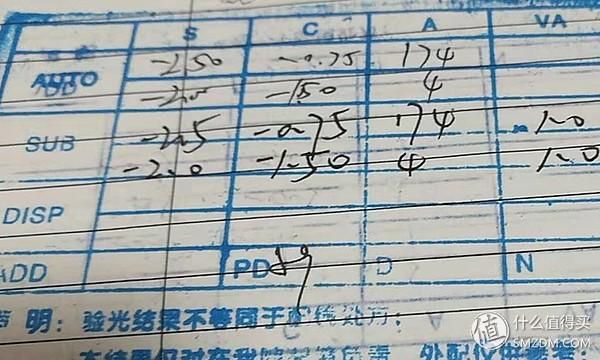 S C A VA
AUTO -2.50 -0.75 174
-2.0 -1.50 4
SUB -2.5 -0.75 174 1.0
-2.0 -1.50 4 1.0
DISP
ADD PD D N
明：验光结果不等同于
值 什么值得买
SMZDM.COM